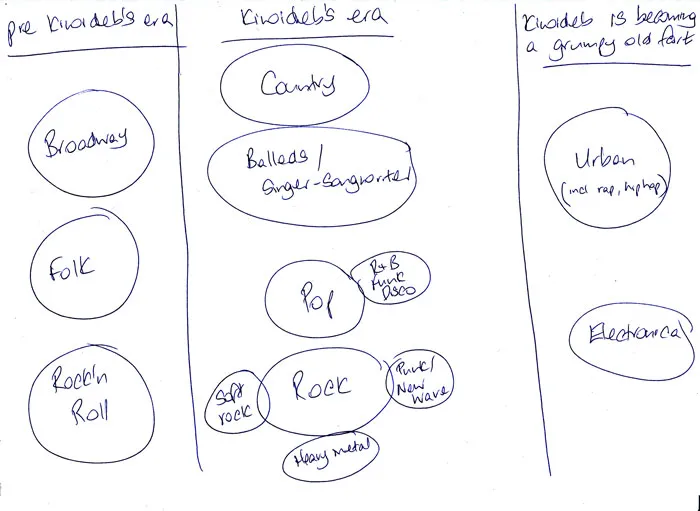 pre Kiwideb's era
Broadway
Folk
Rock'n
Roll
Kiwideb's era
Country
Ballads /
Singer-Songwriter
Pop
R+B
Funk
Disco
Soft
rock
Rock
Punk/
New
wave
Heavy metal
Kiwideb is becoming
a grumpy old fart
Urban
(incl rap, hiphop)
Electronical